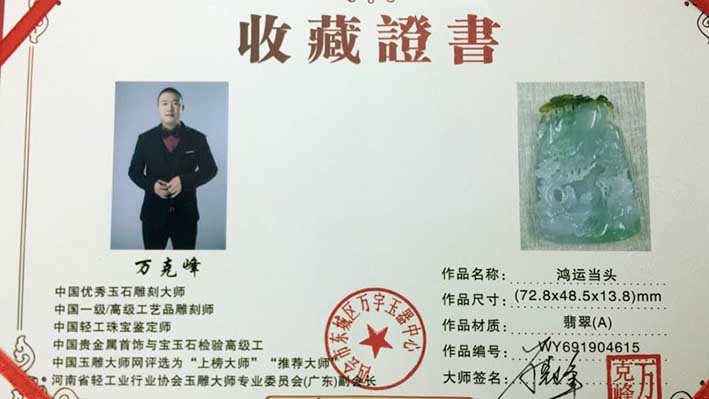 收藏證書
万克峰
中国优秀玉石雕刻大师
中国一级/高级工艺品雕刻师
中国轻工珠宝鉴定师
中国贵金属首饰与宝玉石检验高级工
中国玉雕大师网评选为“上榜大师”“推荐大师”
河南省轻工业行业协会玉雕大师专业委员会(广东)副会长
四会市东城区万字玉器中心
作品名称：鸿运当头
作品尺寸：(72.8x48.5x13.8)mm
作品材质：翡翠(A)
作品编号：WY691904615
大师签名：万克峰
万克峰